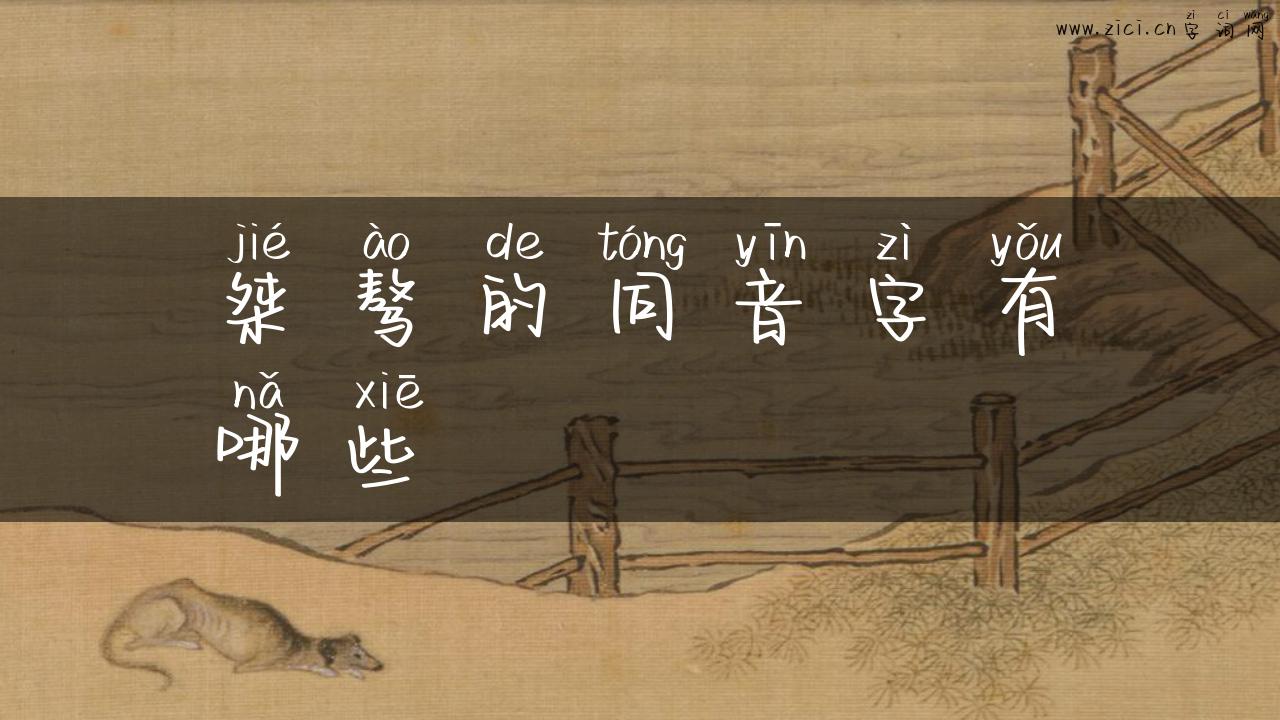 zì cí wǎng
www.zici.cn 字词网
jié ào de tóng yīn zì yǒu
桀骜的同音字有
nǎ xiē
哪些